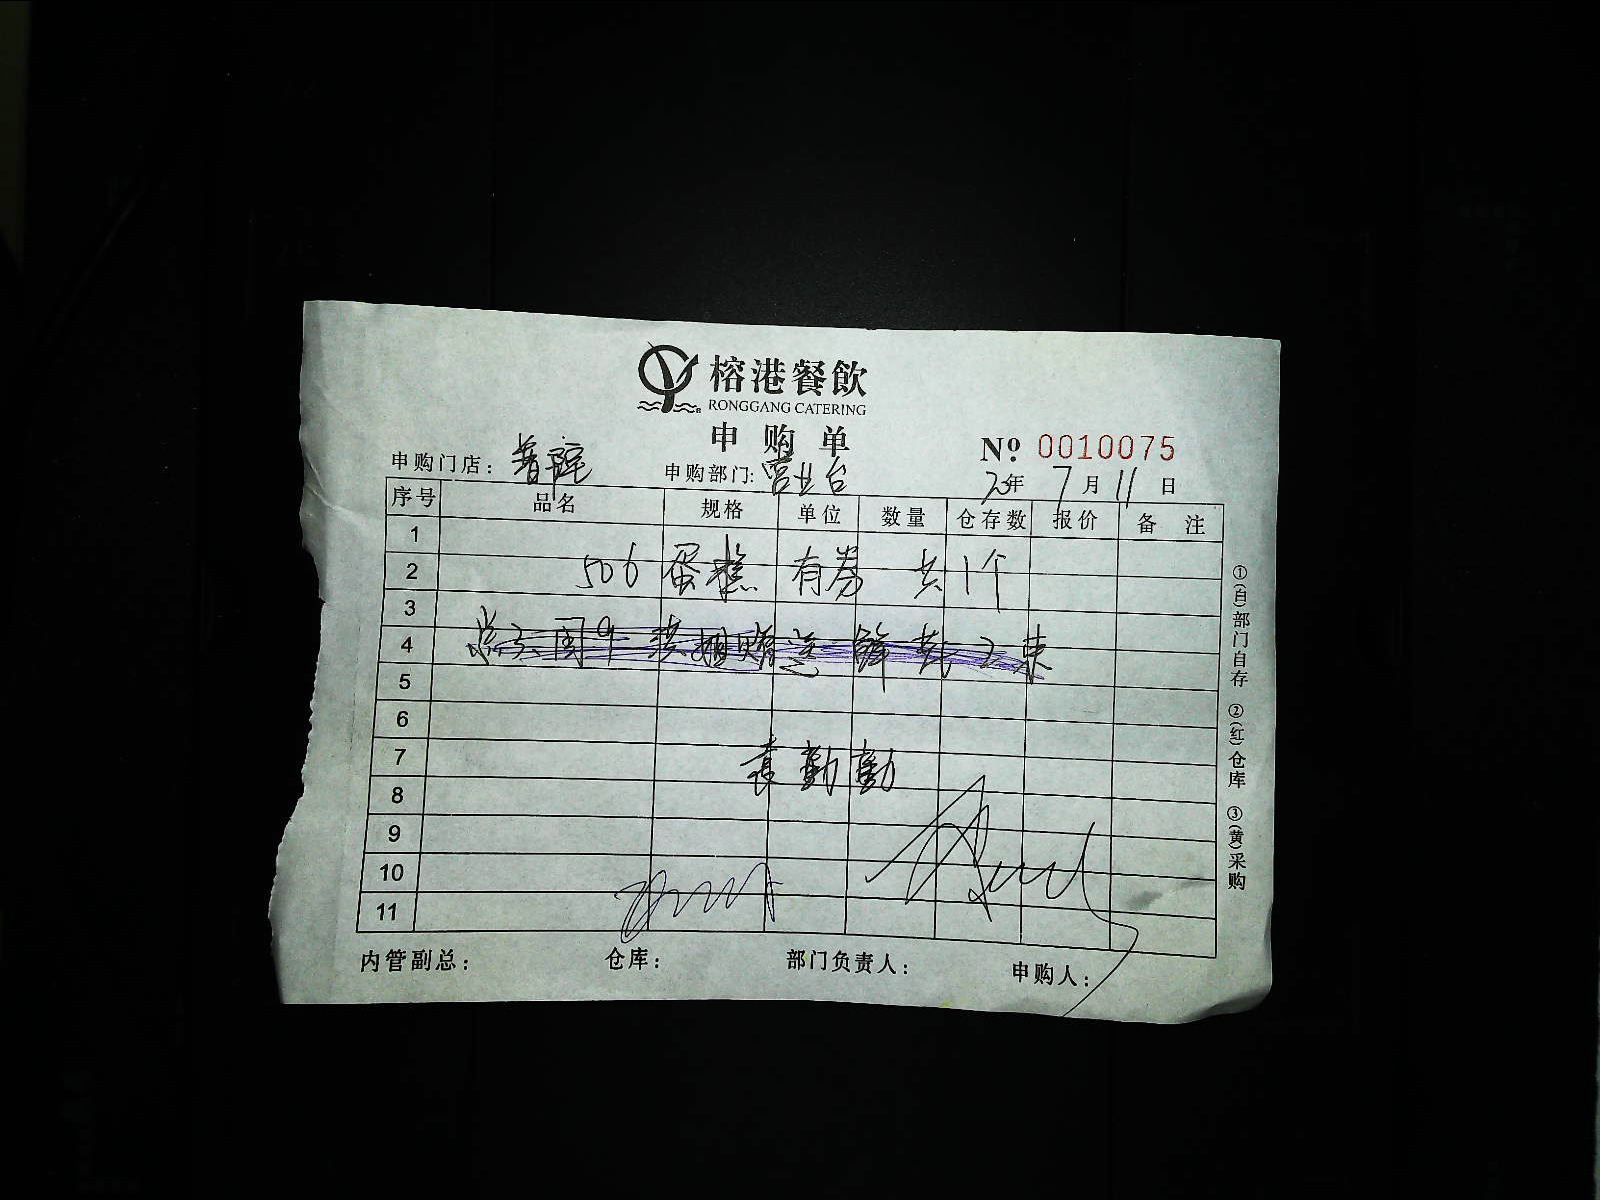 榕港餐飲
RONGGANG CATERING
申购单
№ 0010075
申购门店： 申购部门: 营业台 年 7 月 11 日
序号 品名 规格 单位 数量 仓存数 报价 备注
1
2 506 蛋糕 有券 共1个
3
4
5
6
7 袁勤勤
8
9
10
11
内管副总： 仓库： 部门负责人： 申购人：
①(白)部门自存 ②(红)仓库 ③(黄)采购